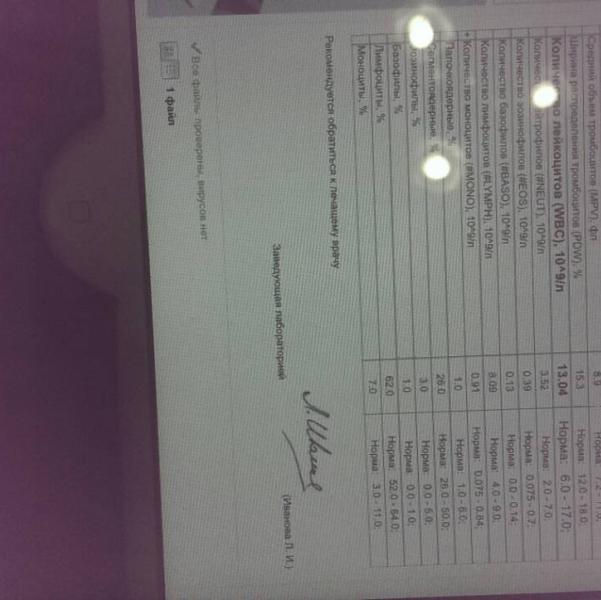 Средний объем тромбоцитов (MPV), фл 8.9 Норма: 7.2 - 11.0;
Ширина распределения тромбоцитов (PDW), % 15.3 Норма: 12.0 - 18.0;
Количество лейкоцитов (WBC), 10^9/л 13.04 Норма: 6.0 - 17.0;
Количество нейтрофилов (#NEUT), 10^9/л 3.52 Норма: 2.0 - 7.0;
Количество эозинофилов (#EOS), 10^9/л 0.39 Норма: 0.075 - 0.7;
Количество базофилов (#BASO), 10^9/л 0.13 Норма: 0.0 - 0.14;
Количество лимфоцитов (#LYMPH), 10^9/л 8.09 Норма: 4.0 - 9.0;
+ Количество моноцитов (#MONO), 10^9/л 0.91 Норма: 0.075 - 0.84;
Палочкоядерные, % 1.0 Норма: 1.0 - 6.0;
Сегментоядерные, % 26.0 Норма: 26.0 - 50.0;
Эозинофилы, % 3.0 Норма: 0.0 - 5.0;
Базофилы, % 1.0 Норма: 0.0 - 1.0;
Лимфоциты, % 62.0 Норма: 52.0 - 64.0;
Моноциты, % 7.0 Норма: 3.0 - 11.0;
Рекомендуется обратиться к лечащему врачу
Заведующая лабораторией (Иванова Л. И.)
✓ Все файлы проверены, вирусов нет
1 файл